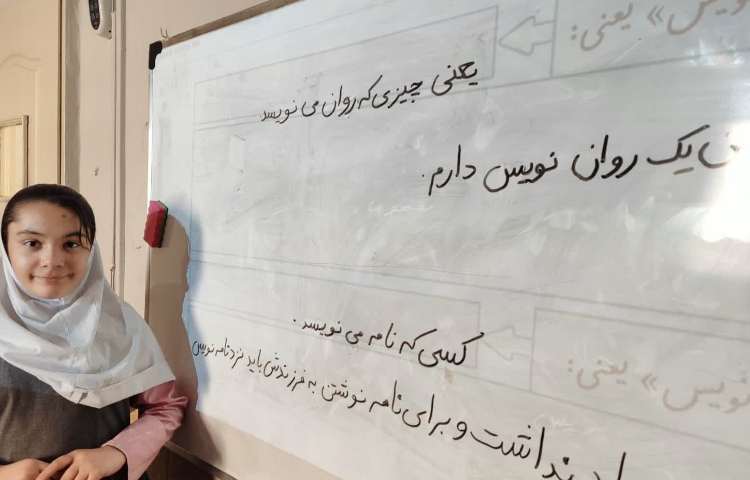 نویس» یعنی:
یعنی چیزی که روان می نویسد
یک روان نویس دارم.
نویس» یعنی:
کسی که نامه می نویسد.
نداشت و برای نامه نوشتن به فرزندش باید نزد نامه نویس